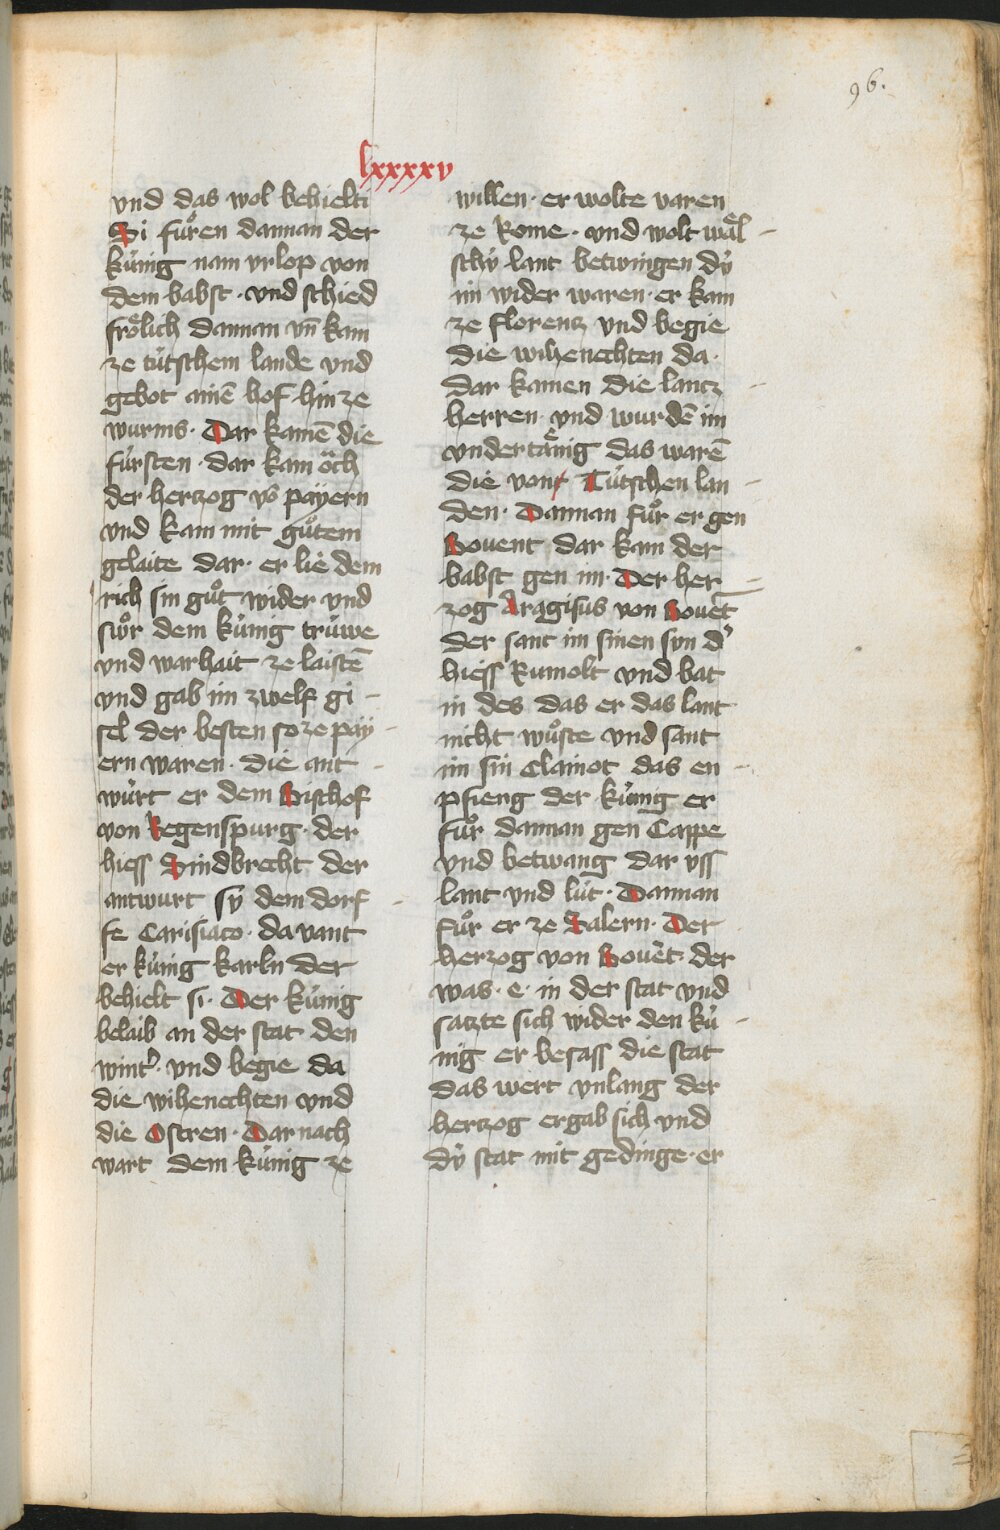 96.
lxxxxv
vnd das wol behielti
Si fuͦren dannan der
kuͤnig nam vrlop von
dem babst · vnd schied
froͤlich dannan vn̄ kam
ze tuͤtschem lande vnd
gebot ainē hof hin ze
wurms · Dar kamē die
fuͤrsten · dar kam oͮch
der hertzog vō payern
vnd kam mit guͦtem
gelaite dar · er lie dem
rich sin guͦt wider vnd
swoͦr dem kuͤnig truͤwe
vnd warhait ze laistē
vnd gab im zwelf gi -
sel der besten so ze pay -
ern waren · die ant -
wuͤrt er dem Bischof
von Regenspurg · der
hiess Sindbrecht der
antwurt sy dem dorf -
fe Carisiaco · da vant
er kuͤnig karln der
behielt si · Der kuͤnig
belaib an der stat den
wint᾽ · vnd begie da
die wihenechten vnd
die Ostren · Dar nach
wart dem kuͤnig ze
willen · er wolte varen
ze Rome · vnd wolt waͤl -
schy lant betwingen dy
im wider waren · er kam
ze florentz vnd begie
die wihenechten da ·
dar kamen die lantz -
herren · vnd wurdē im
vndertaͤnig das warē
die von Tuͤtschen lan -
den · Dannan fuͦr er gen
Bouent dar kam der
babst gen im · Der her -
zog Aragisus von Bouēt
der sant im sinen sun d᾽
hiess Rumolt vnd bat
in des das er das lant
nicht wuͦste vnd sant
im sin Clainot das en -
pfieng der kuͤnig er
fuͦr dannan gen Cappe
vnd betwang dar vss
lant vnd luͤt · Dannan
fuͦr er ze Salern · Der
herzog von Bouēt · der
was · e · in der stat vnd
satzte sich wider den kuͤ -
nig er besass die stat
das wert vnlang der
hertzog ergab sich vnd
dy stat mit gedinge · er